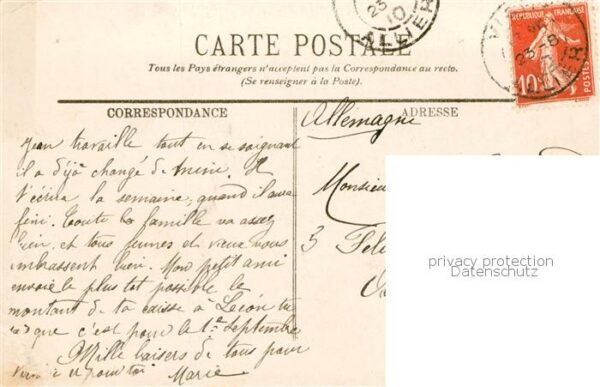 CARTE POSTALE
Tous les Pays étrangers n'acceptent pas la Correspondance au recto.
(Se renseigner à la Poste).
CORRESPONDANCE
ADRESSE
REPUBLIQUE FRANÇAISE
10
POSTES
ALLIER
Allemagne
Monsieu
3
Jean travaille tout en se soignant
il a déjà changé de mine. Il
t'écrira la semaine, quand il aura
fini. Toute la famille va assez
bien et tous jeunes et vieux vous
embrassent bien. Mon petit ami
envoie le plus tôt possible le
montant de ta caisse à Léon tu
que c'est pour le 1er Septembre
Mille baisers de tous pour
et pour toi Marie
privacy protection
Datenschutz